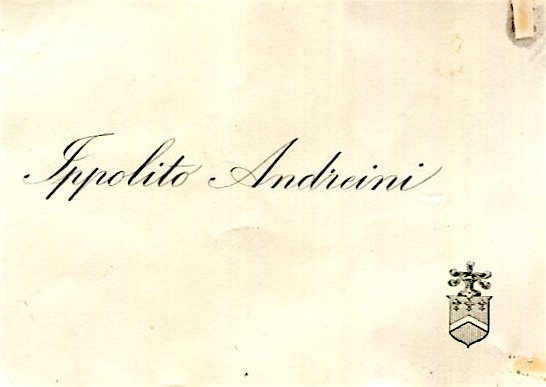 Ippolito Andreini